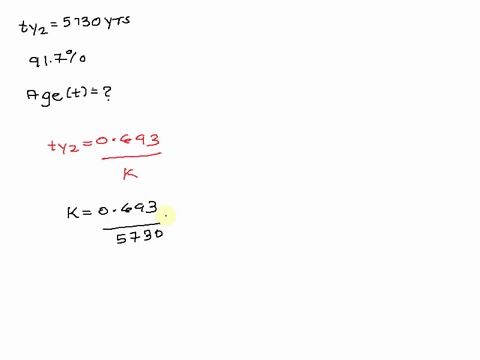 t1/2 = 5730 yrs
91.7%
Age(t) = ?
t1/2 = 0.693
K
K = 0.693
5730